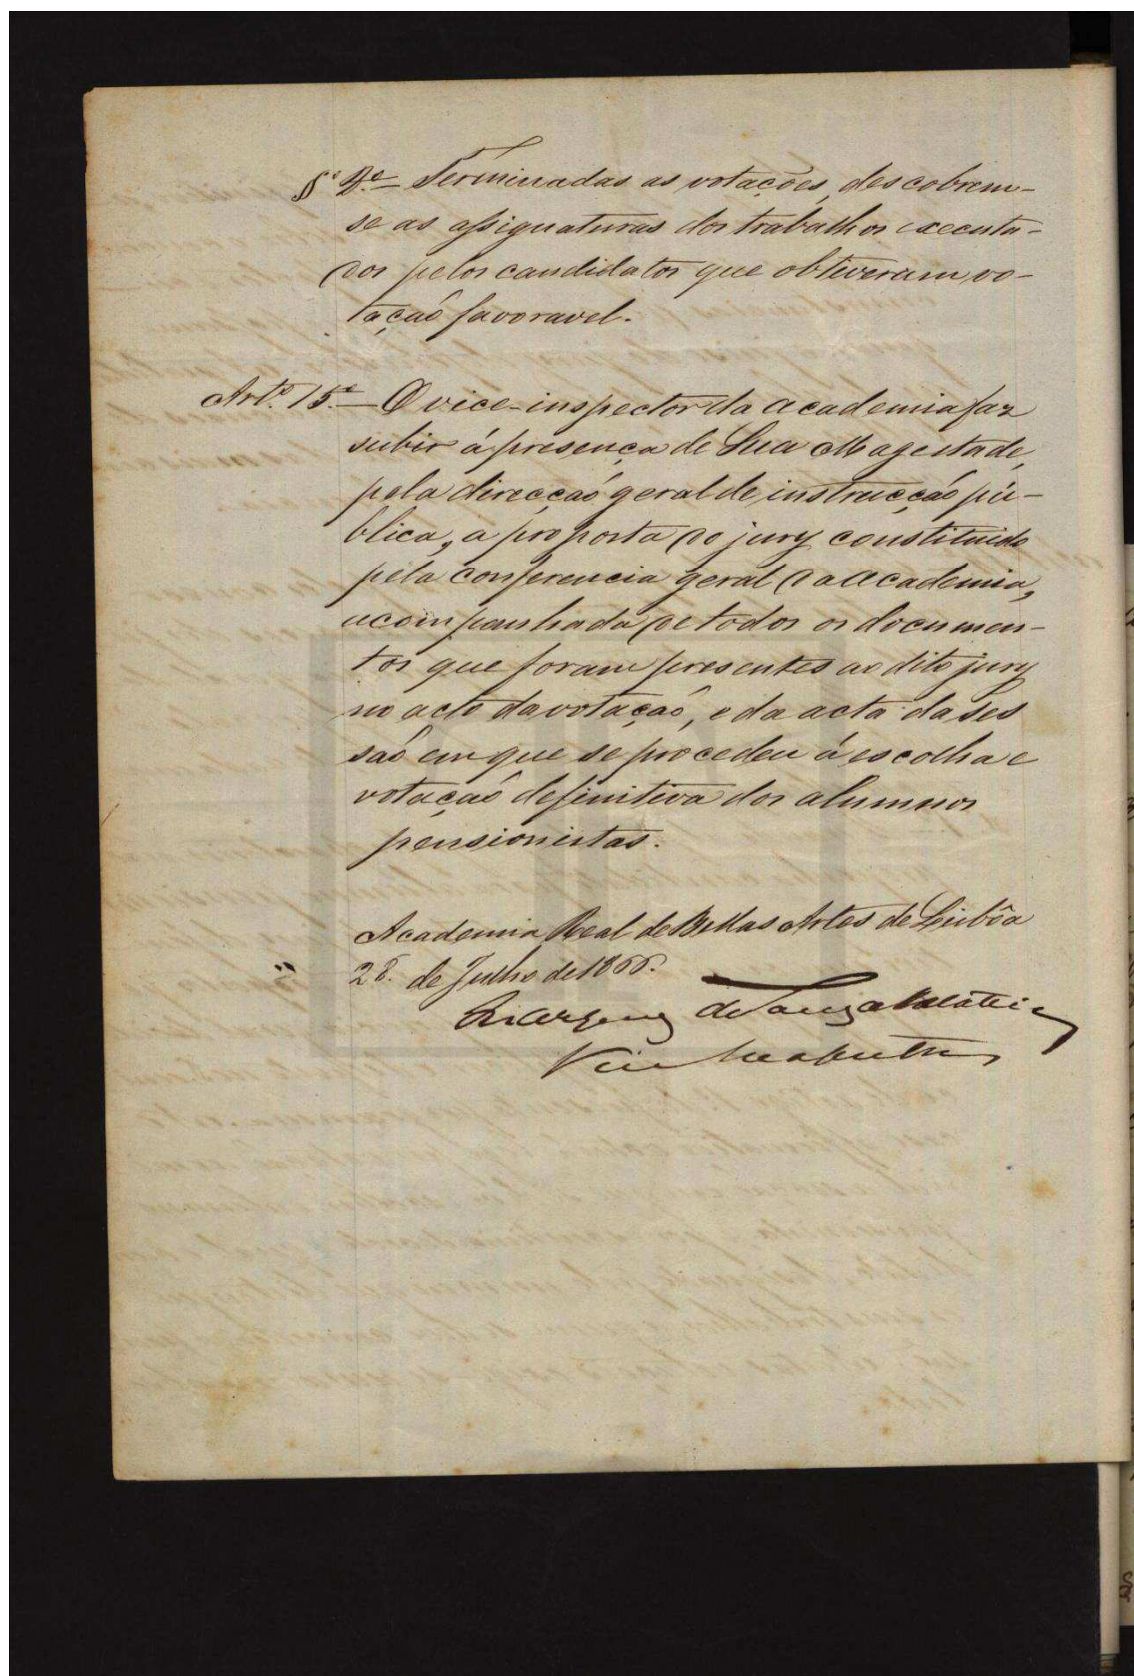 § 2.º — Terminadas as votações, descobrem-
se as assignaturas dos trabalhos executa-
dos pelos candidatos que obtiveram vo-
tação favoravel.
Artº. 15º — O vice-inspector da academia faz
subir á presença de Sua Magestade,
pela direcção geral de instrucção pú-
blica, a proposta do jury constituido
pela conferencia geral da academia,
acompanhada de todos os documen-
tos que foram presentes ao dito jury
no acto da votação, e da acta da ses
são em que se procedeu á escolha e
votação definitiva dos alumnos
pensionistas.
Academia Real de Bellas Artes de Lisbôa
28. de Julho de 1866.
de Souza
Vice Inspector